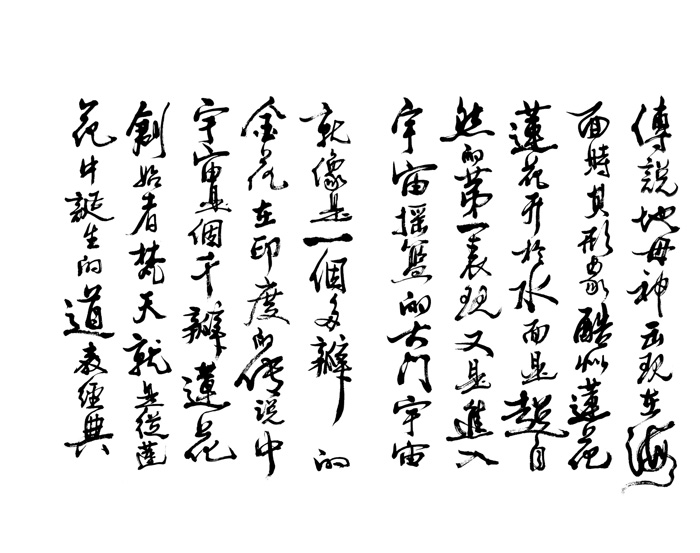 傳說地母神出現在海
面時其形象酷似蓮花
蓮花开於水面是超自
然的第一表現又是進入
宇宙搖籃的大门宇宙
就像是一個多瓣的
金花在印度的传說中
宇宙是個千瓣蓮花
創始者梵天就是從蓮
花中誕生的道教經典